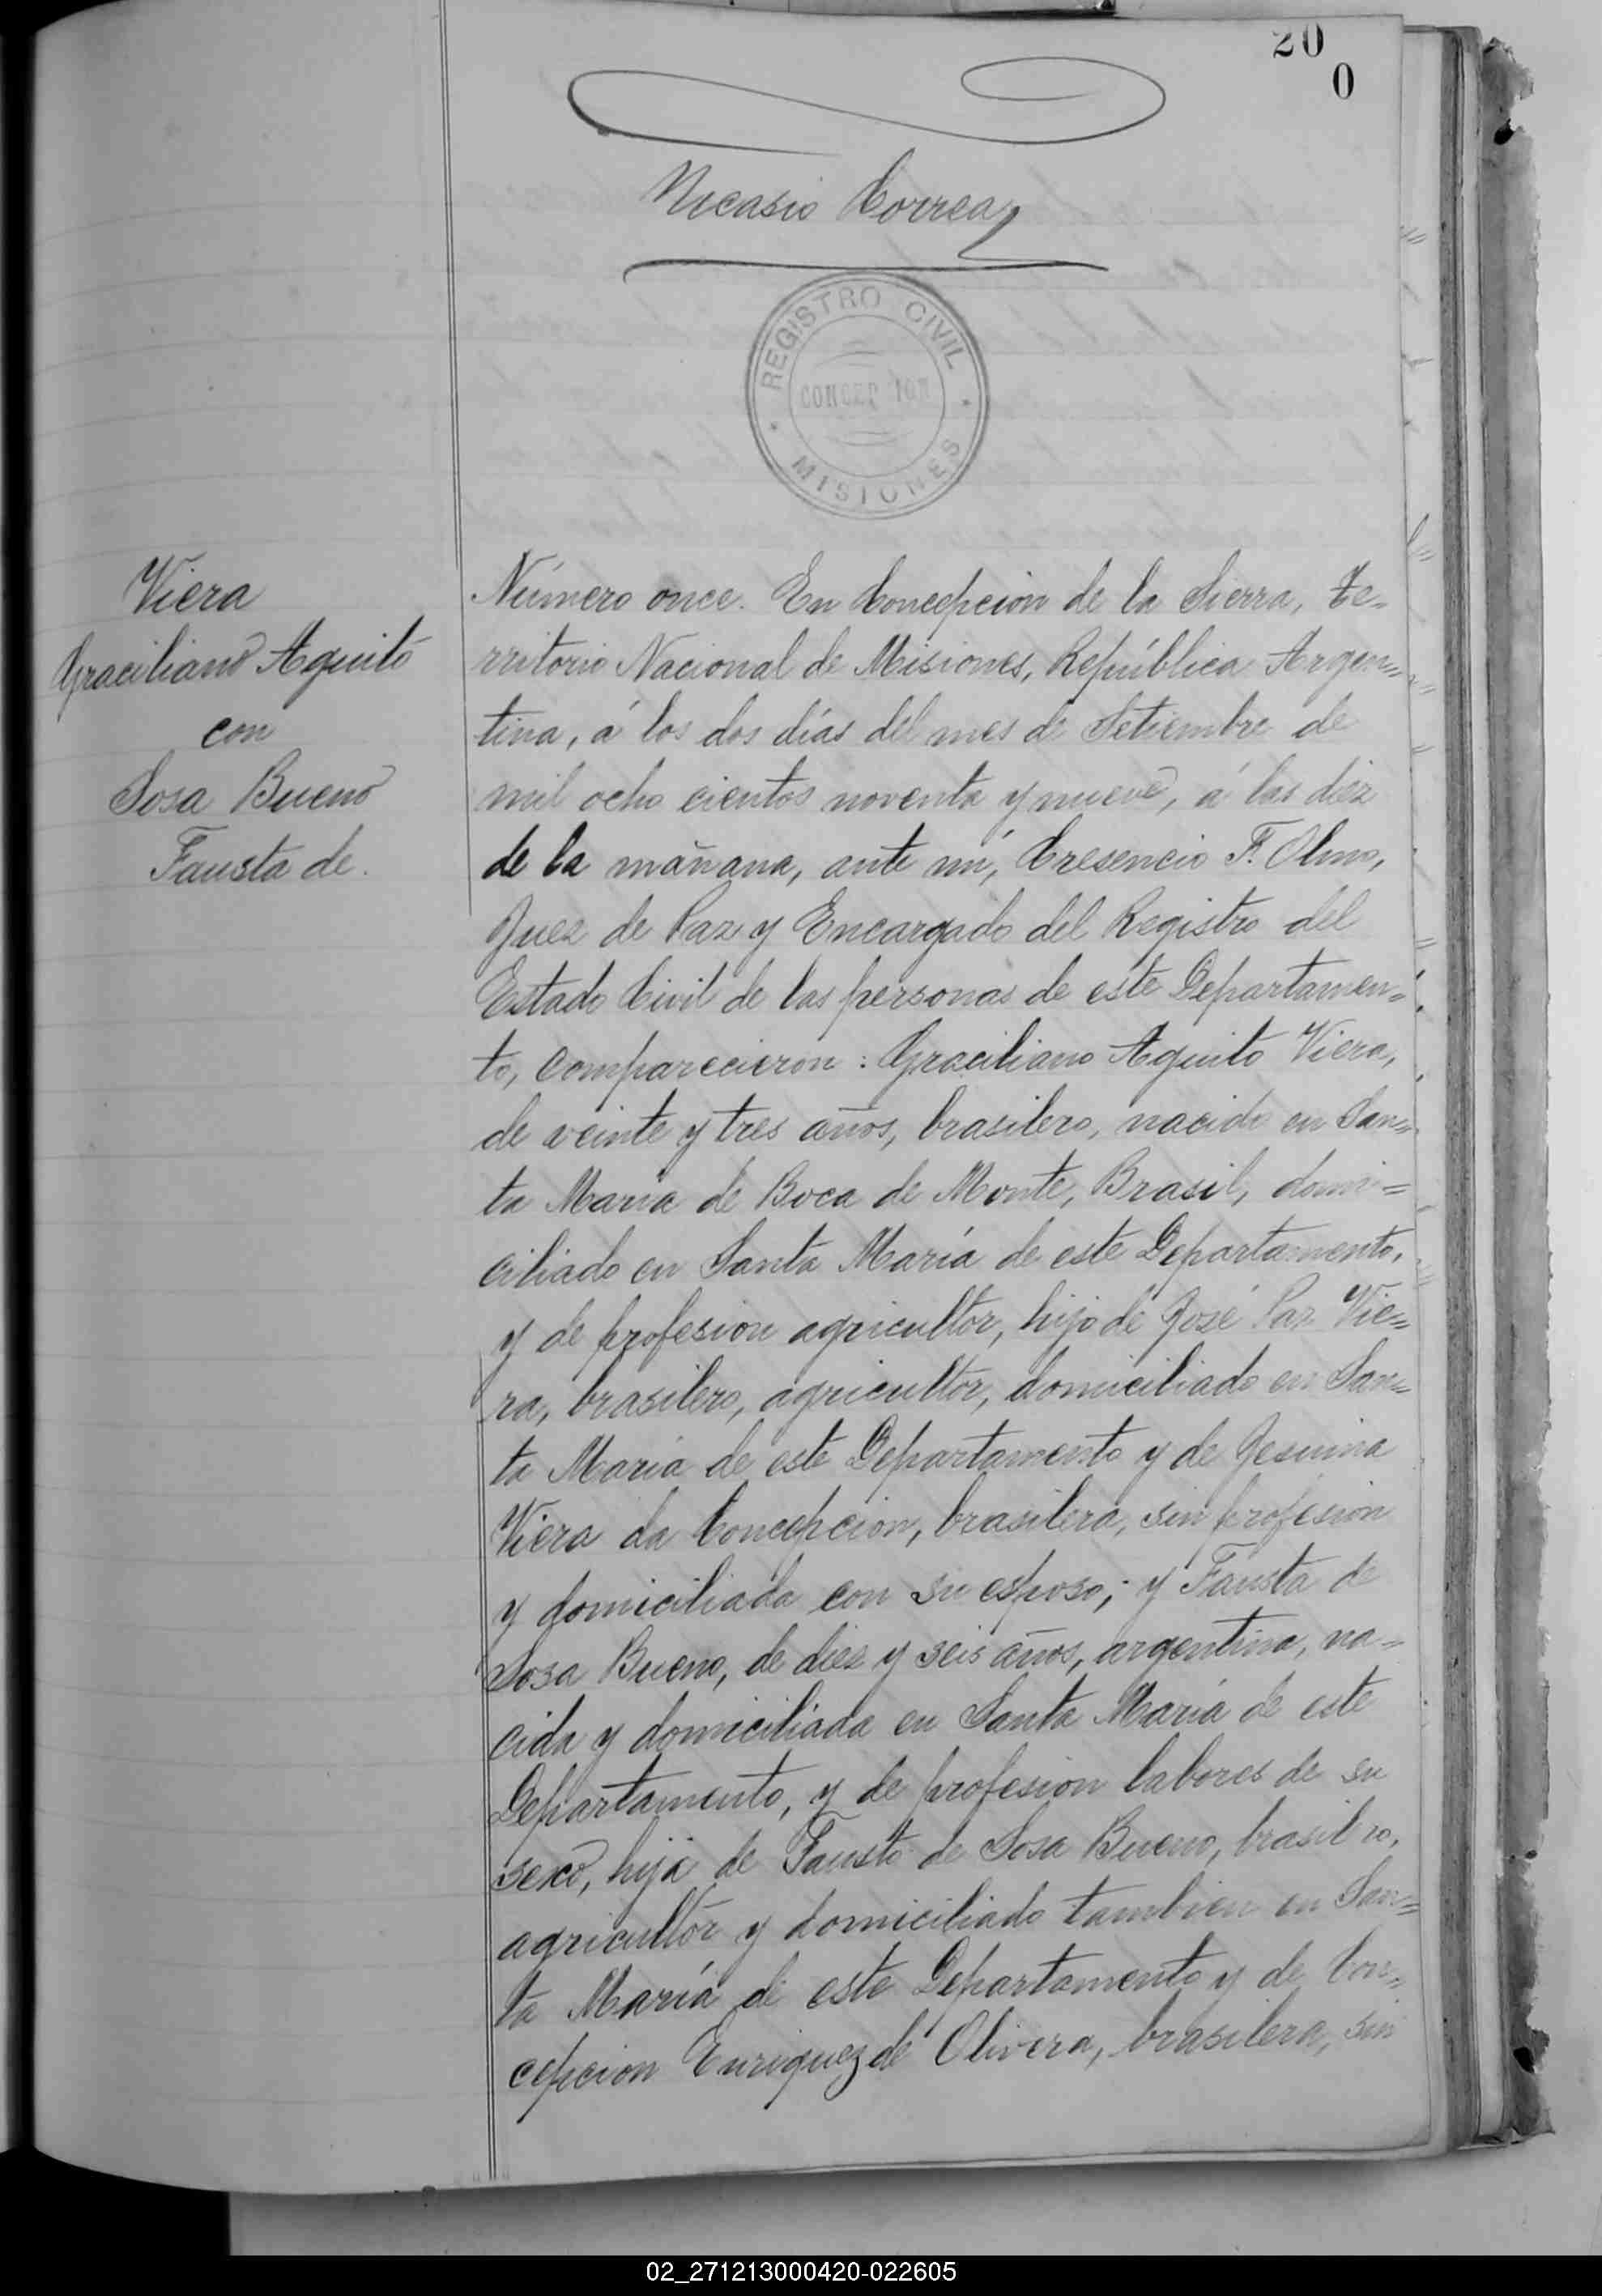 20
0
Nicasio Correa
REGISTRO CIVIL
CONCEPCION
MISIONES
Viera
Graciliano Aquito
con
Sosa Bueno
Fausta de.
Número once. En Concepcion de la Sierra, Te=
rritorio Nacional de Misiones, República Argen=
tina, á los dos días del mes de Setiembre de
mil ocho cientos noventa y nueve, á las diez
de la mañana, ante mí, Cresencio F. Olmo,
Juez de Paz y Encargado del Registro del
Estado Civil de las personas de este Departamen=
to, comparecieron: Graciliano Aquito Viera,
de veinte y tres años, brasilero, nacido en San=
ta Maria de Boca de Monte, Brasil, domi=
ciliado en Santa María de este Departamento,
y de profesion agricultor, hijo de José Paz Vie=
ra, brasilero, agricultor, domiciliado en San=
ta María de este Departamento y de Jesuina
Viera da Concepcion, brasilera, sin profesion
y domiciliada con su esposo; y Fausta de
Sosa Bueno, de diez y seis años, argentina, na=
cida y domiciliada en Santa María de este
Departamento, y de profesion labores de su
sexo, hija de Fausto de Sosa Bueno, brasilero,
agricultor y domiciliado tambien en San=
ta María de este Departamento y de Con=
cepcion Enriquez de Olivera, brasilera, sin
02_271213000420-022605